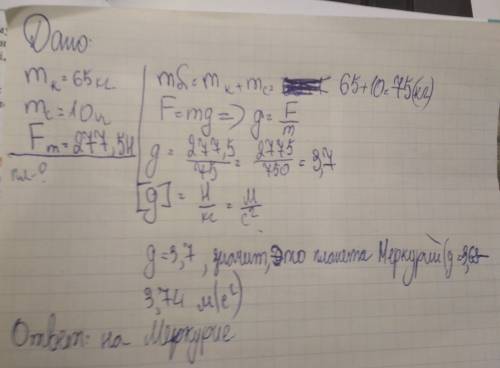 Дано:
mк = 65кг
mс = 10кг
Fт = 277,5Н
пл-?
mб = mк + mс = 65+10=75(кг)
F=mg => g = F/m
g = 277,5/75 = 2775/750 = 3,7
[g] = Н/кг = м/с²
g=3,7, значит, это планета Меркурий (g=3,68-
3,74 м/с²)
Ответ: на Меркурие